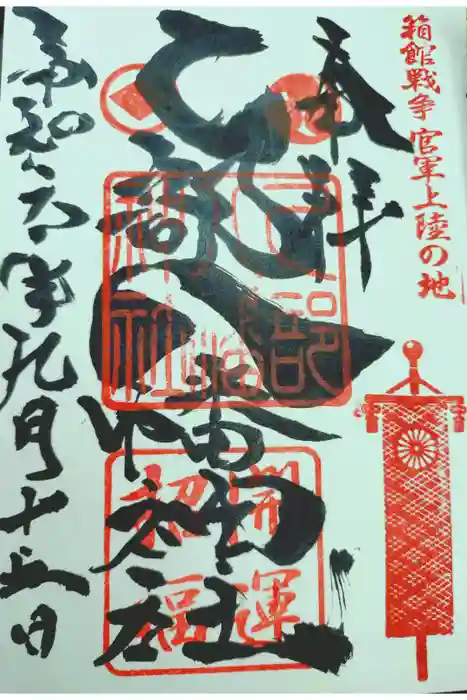 箱館戦争 官軍上陸の地
奉拝
乙部八幡神社
乙部
八幡
神社
開運
招福
令和六年九月十五日